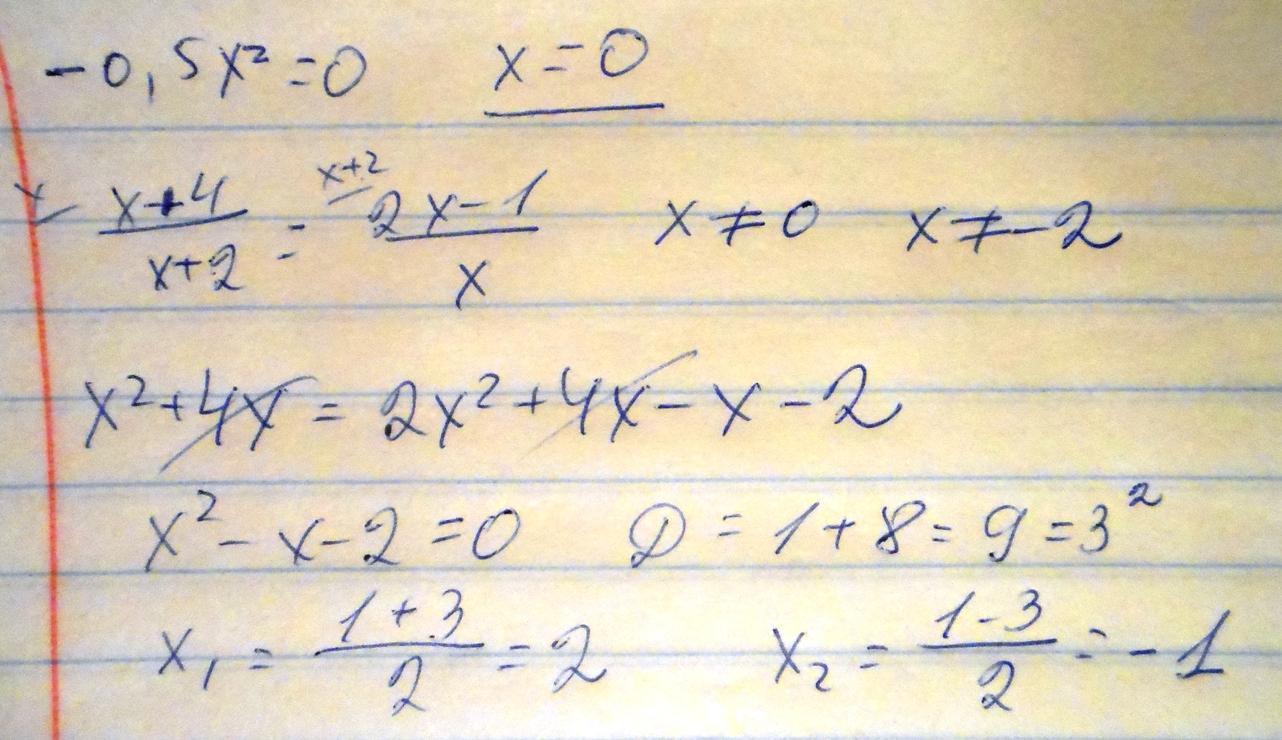 -0,5x²=0 x=0
x x+4/x+2 = x+2 2x-1/x x≠0 x≠-2
x²+4x = 2x²+4x-x-2
x²-x-2=0 D=1+8=9=3²
x₁ = 1+3/2 = 2 x₂ = 1-3/2 = -1